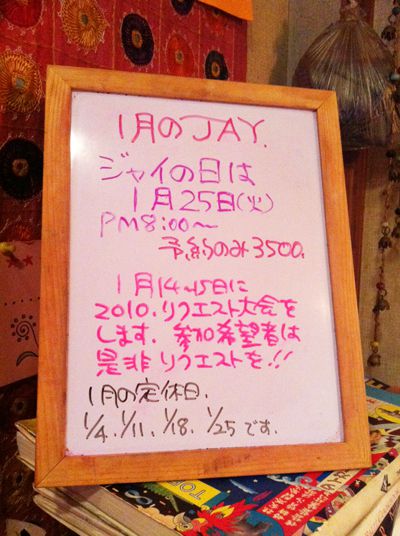 1月のJAY.
ジャイの日は
1月25日(火)
PM8:00〜
予約のみ3500.
1月14〜15日に
2010.リクエスト大会を
します.参加希望者は
是非リクエストを.!!
1月の定休日.
1/4.1/11.1/18.1/25です.